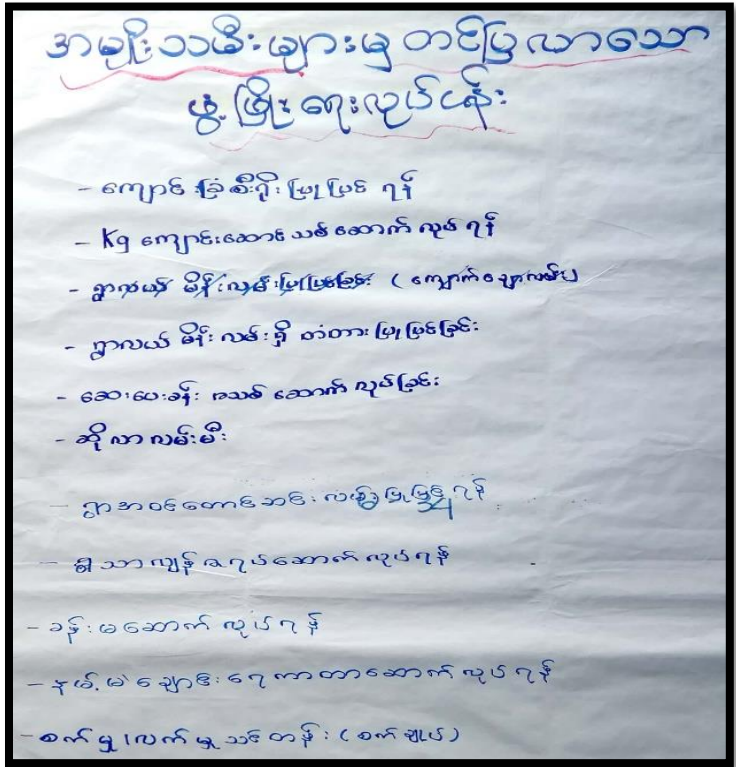 အမျိုးသမီးများမှ တင်ပြလာသော
ဖွံ့ဖြိုးရေးလုပ်ငန်း
- ကျောင်းခြံစည်းရိုး ပြုပြင်ရန်
- Kg ကျောင်းဆောင်သစ် ဆောက်လုပ်ရန်
- ရွာလယ် မိန်းလမ်းပြုပြင်ခြင်း (ကျောက်ချောလမ်း)
- ရွာလယ် မိန်းလမ်းရှိ တံတား ပြုပြင်ခြင်း
- ဆေးပေးခန်း အသစ် ဆောက်လုပ်ခြင်း
- ဆိုလာလမ်းမီး
- ရွာအဝင်တောင်ဆင်းလမ်း ပြုပြင်ရန်
- ရွှိသာလျှန် ဇရပ်ဆောက်လုပ်ရန်
- ခန်းမဆောက်လုပ်ရန်
- ချောင်းရေကာတာဆောက်လုပ်ရန်
- စက်မှု၊လက်မှုသင်တန်း (စက်ချုပ်)